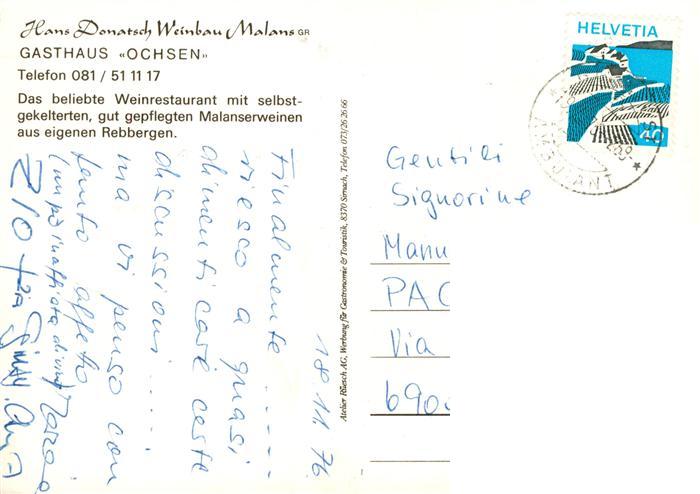 Hans Donatsch Weinbau Malans GR
GASTHAUS «OCHSEN»
Telefon 081 / 51 11 17
Das beliebte Weinrestaurant mit selbst-
gekelterten, gut gepflegten Malanserweinen
aus eigenen Rebbergen.
18 11 76
Finalmente ......
riesco a quasi
dimenticare certe
discussioni .....
ma vi penso con
tanto affetto
ZIO + zia
Atelier Rüesch AG, Werbung für Gastronomie & Touristik, 8370 Sirnach, Telefon 073/26 26 66
HELVETIA
40
AMBULANT
Gentili
Signorine
Manu
PAC
Via
690